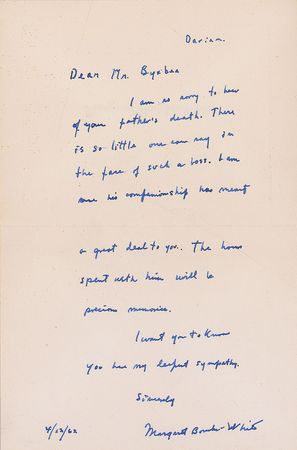 Darien.
Dear Mr.
I am so sorry to hear
of your father's death. There
is so little one can say in
the face of such a loss. I am
sure his companionship has meant
a great deal to you. The hours
spent with him will be
precious memories.
I want you to know
you have my deepest sympathy.
Sincerely
4/12/62 Margaret Bourke-White